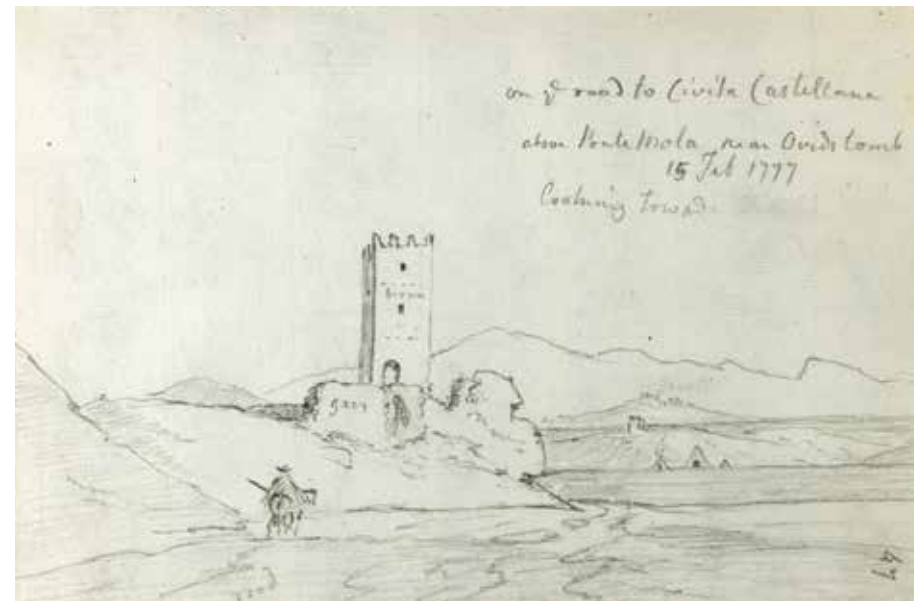 on ye road to Civita Castellana
above Ponte Mola near Ovids tomb
15 Feb 1797
Coming towards
brown
grey
road